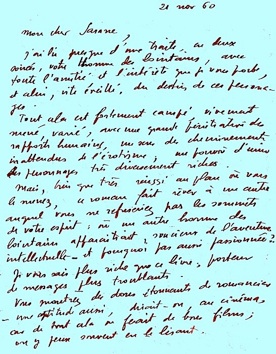 21 nov 60
mon cher Sarane,
j'ai lu presque d'une traite, en deux
soirées, votre "Homme des lointains", avec
toute l'amitié et l'intérêt que je vous porte,
et celui, vite éveillé, du destin de ces personna-
ges.
Tout cela est fortement campé, vivement
mené, varié, avec une grande pénétration des
rapports humains, un sens du cheminement
inattendu de l'érotisme, un pouvoir d'unir
des personnages très diversement riches.
Mais, bien que très réussi au plan où vous
le menez, ce roman fait rêver à un autre
auquel vous ne refuseriez pas les sommets
de votre esprit : où un autre homme des
lointains apparaîtrait, soucieux de l'aventure
intellectuelle - et pourquoi pas aussi passionnée ?
Je vous sais plus riche que ce livre, porteur
de messages plus troublants.
Vous montrez des dons étonnants de romancier
- une aptitude aussi, dirait-on, au cinéma,
car de tout cela se ferait de bons films ;
on y pense souvent en le lisant.